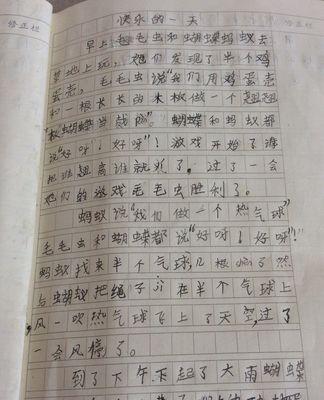 快乐的一天
修正栏
修正栏
早上毛毛虫和蝴蝶蚂蚁去
草地上玩，她们发现了半个鸡
蛋壳，毛毛虫说"我们用鸡蛋壳
和一根长长的木板做一个翘翘
板蝴蝶当裁 蝴蝶和蚂蚁都
说"好呀！好呀"！游戏开始了谁
把谁翘高谁就 了，过了一会
她们的游戏毛毛虫胜利了。
蚂蚁说"我们做一个热气球"
毛毛虫和蝴蝶都说"好呀！好呀"！
蚂蚁找来半个气球，几根 子然
把绳子 在半个气球上
风一吹热气球飞上了天空，过了
一会风停了。
到了下午，下起了大雨蝴蝶